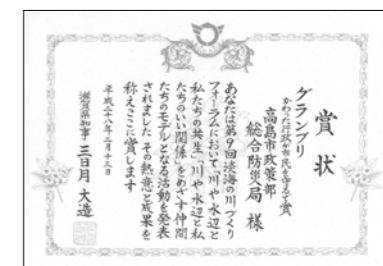 賞状
グランプリ
かわった行政が市民を支えて賞
高島市政策部
総合防災局 様
あなたは第9回淡海の川づくり
フォーラムにおいて「川や水辺と
私たちの共生」「川や水辺と私
たちのいい関係」をめざす仲間
たちのモデルとなる活動を発表
されました その熱意と成果を
称えここに賞します
平成二十八年二月十三日
滋賀県知事 三日月 大造